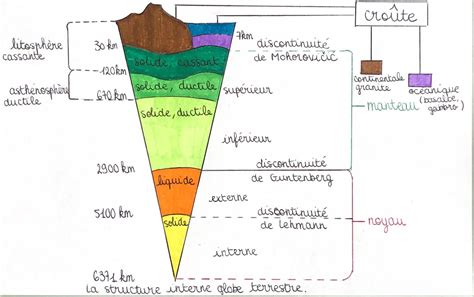 croûte
litosphère
cassante
30 km
7km
discontinuité
de Mohorovičić
solide, cassant
120km
asthénosphère
ductile
solide, ductile
670km
supérieur
continentale
granite
océanique
(basalte,
gabbro)
manteau
solide, ductile
inférieur
2900 km
discontinuité
de Guntenberg
liquide
externe
5100 km
discontinuité
de Lehmann
solide
noyau
interne
6371 km
La structure interne globe terrestre.